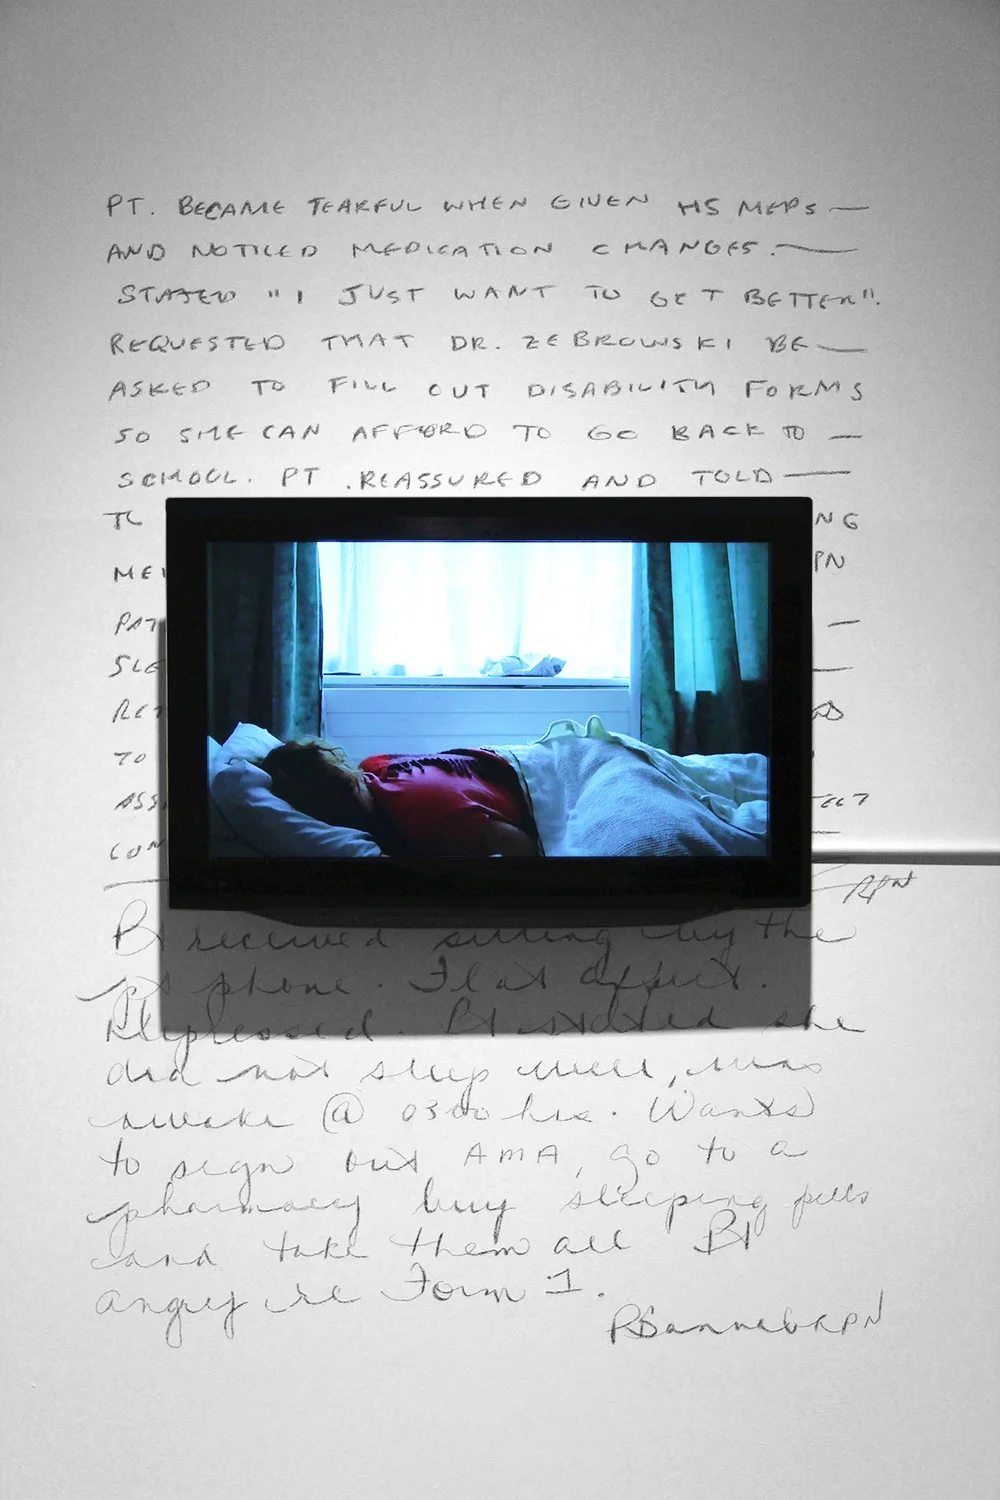 PT. BECAME TEARFUL WHEN GIVEN HS MEDS —
AND NOTICED MEDICATION CHANGES. —
STATED "I JUST WANT TO GET BETTER".
REQUESTED THAT DR. ZEBROWSKI BE —
ASKED TO FILL OUT DISABILITY FORMS
SO SHE CAN AFFORD TO GO BACK TO —
SCHOOL. PT. REASSURED AND TOLD —
NG
PN
PAT —
SLE —
TO
ASS ECT
CON —
RPN
Pt received sitting by the
pt phone. Flat affect.
Depressed. Pt stated she
did not sleep well, was
awake @ 0300 hrs. Wants
to sign out AMA, go to a
pharmacy buy sleeping pills
and take them all Pt
angry re Form 1.
RPN